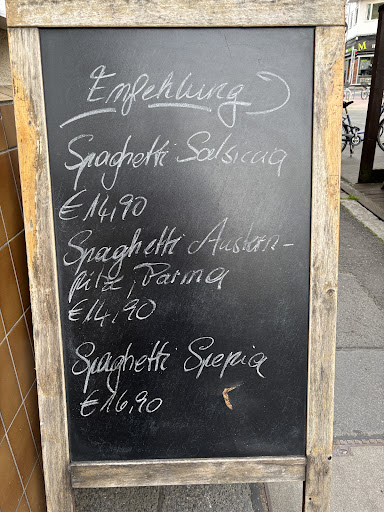 Empfehlung
Spaghetti Salsiccia
€ 14,90
Spaghetti Austern-
pilz, Parma
€ 14,90
Spaghetti Sepia
€ 16,90